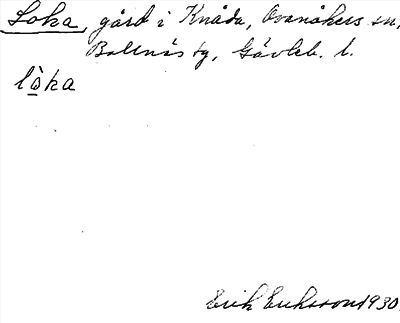 Loka, gård i Knåda, Ovanåkers sn,
Bollnäs tg, Gävleb. l.
lo̱ka
Erik Eriksson 1930.